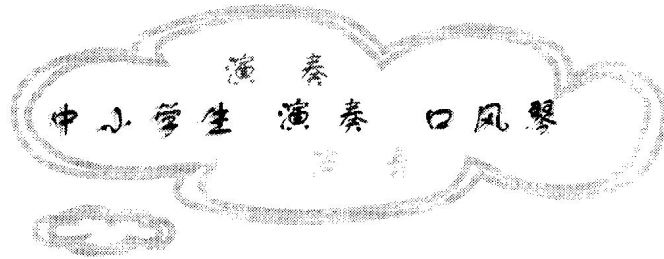 演奏
中小学生 演奏 口风琴